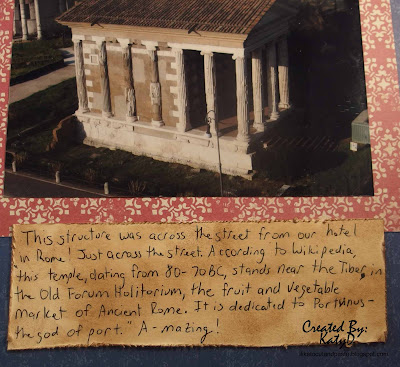 This structure was across the street from our hotel
in Rome! Just across the street. According to Wikipedia,
this temple, dating from 80-70BC, stands near the Tiber, in
the Old Forum Holitorium, the fruit and vegetable
market of Ancient Rome. It is dedicated to Portunus -
the god of port." A-mazing!
Created By:
KatyD